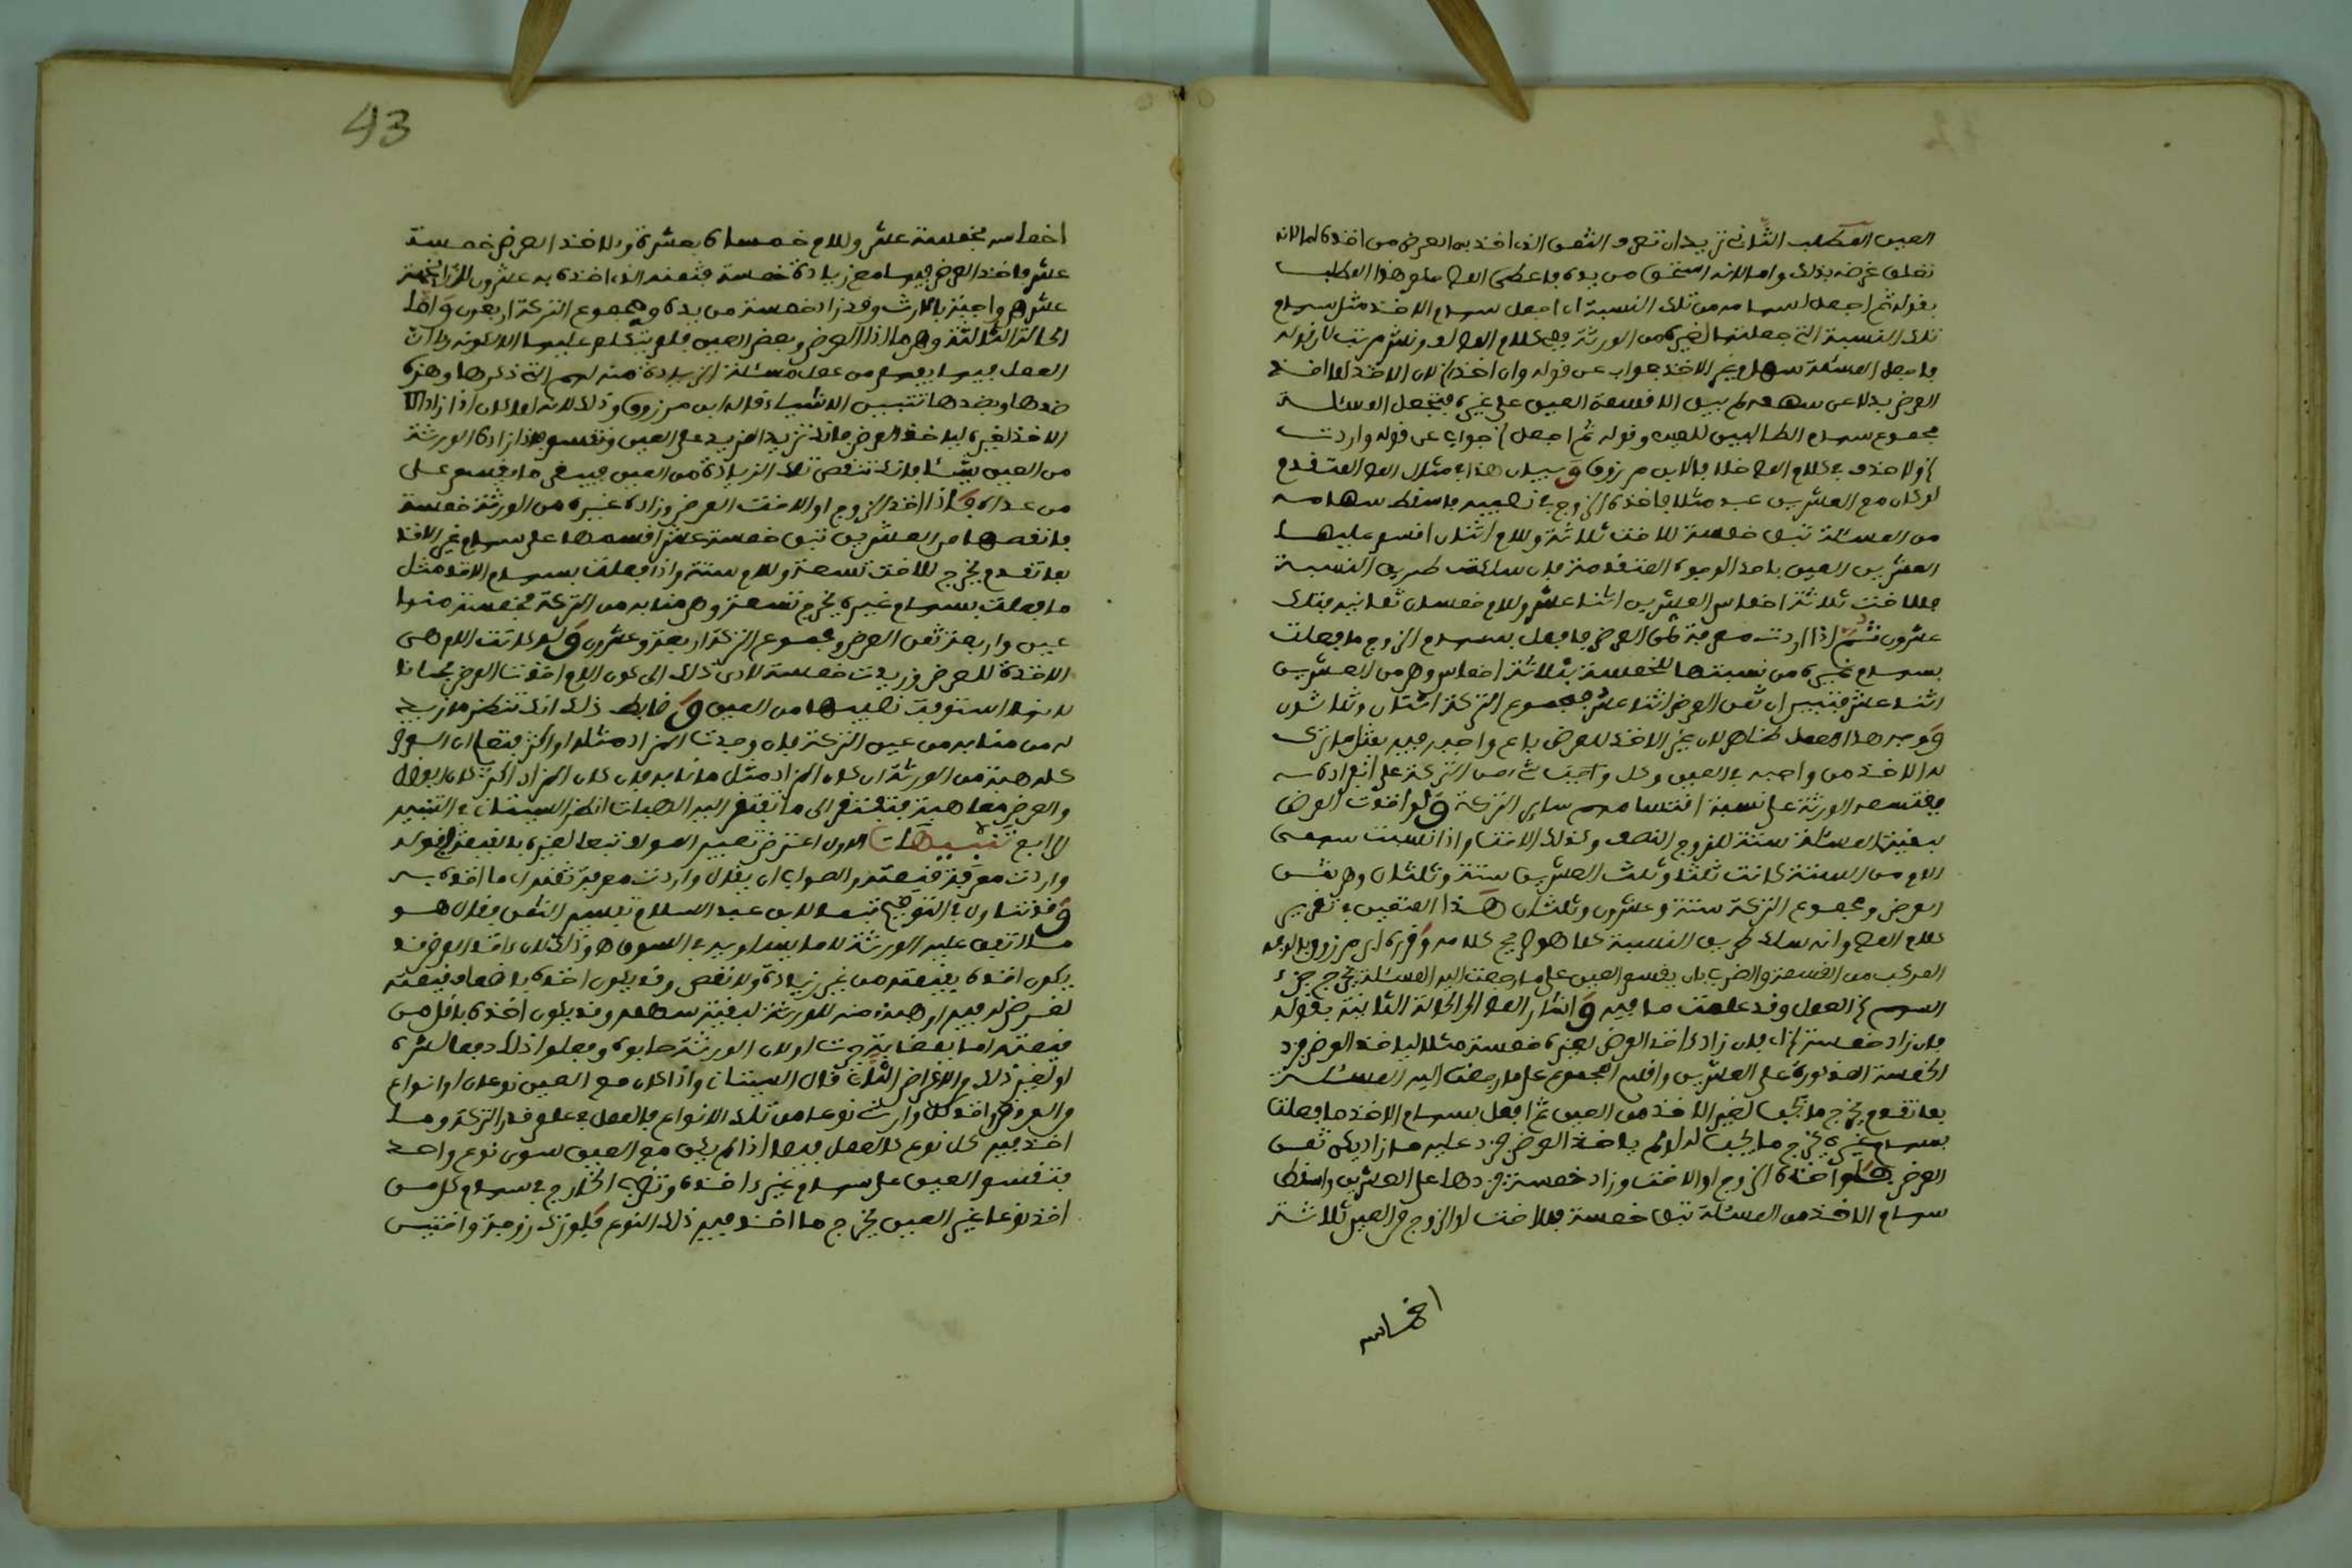 العين المطلب الثاني تريد ان تعرف الثمن الذي اخذ به العرض من اخذه اما لانه
تعلق غرضه بذلك واما لانه استحق من يده فاعطى المص حكم هذا المطلب
بقوله ثم اجعل لسهامه من تلك النسبة اي اجعل لسهام الاخذ مثل سهام
تلك النسبة التي جعلتها لغيره من الورثة وفي كلام المص لف ونشر مرتب لان قوله
فاجعل المسئلة سهام غير الاخذ جواب عن قوله وان اخذ الخ لان الاخذ لما اخذ
العرض بدلا عن سهمه لم يبق الا قسمة العين على غيره فتجعل المسئلة
مجموع سهام الطالبين للعين وقوله ثم اجعل الخ جواب عن قوله واردت
الخ ولا حذف في كلام المص خلافا لابن مرزوق وبيان هذا في مثال المص المتقدم
لو كان مع العشرين عبد مثلا فاخذه الزوج في نصيبه فاسقط سهامه
من المسئلة تبقى خمسة للاخت ثلاثة وللام اثنان اقسم عليها
العشرين العين باحد الوجوه المتقدمة فان سلكت طريق النسبة
فللاخت ثلاثة اخماس العشرين اثنا عشر وللام خمسان ثمانية فتلك
عشرون ثم اذا اردت معرفة ثمن العرض فافعل بسهام الزوج ما فعلت
بسهام غيره من نسبتها للخمسة بثلاثة اخماس وهي من العشرين
اثنا عشر فتبين ان ثمن العرض اثنا عشر فمجموع التركة اثنان وثلاثون
ووجه هذا العمل ظاهر لان غير الاخذ للعرض باع واجبه فيه بمثل ما ترك
له الاخذ من واجبه في العين وكل واجبه من التركة على انفراده
يقتسمه الورثة على نسبة اقتسامهم سائر التركة ولو اخذت العرض
لبقية المسئلة ستة للزوج النصف وكذلك الاخت واذا نسبت سهمي
الام من الستة كانت ثلثا وثلث العشرين ستة وثلثان وهي ثمن
العرض ومجموع التركة ستة وعشرون وثلثان هذا المتعين في تقرير
كلام المص وانه سلك طريق النسبة كما هو صريح كلامه وقرره ابن مرزوق بالوجه
المركب من القسمة والضرب بان يقسم العين على ما رجعت اليه المسئلة يخرج جزء
السهم الخ العمل وقد علمت ما فيه واشار المص الى الحالة الثانية بقوله
فان زاد خمسة الخ اي فان زاد اخذ العرض لغيره خمسة مثلا لياخذ العرض فزد
الخمسة المذكورة على العشرين واقسم المجموع على ما رجعت اليه المسئلة
بما تقدم يخرج ما يجب لغير الاخذ من العين ثم افعل بسهام الاخذ ما فعلت
بسهام غيره يخرج ما يجب له لو لم ياخذ العرض فزد عليه ما زاد يكن ثمن
العرض فلو اخذه الزوج او الاخت وزاد خمسة فزدها على العشرين واسقط
سهام الاخذ من المسئلة تبقى خمسة فللاخت او الزوج في العين ثلاثة
اخماسه
43
اخماسه بخمسة عشر وللام خمساه بعشرة ولاخذ العرض خمسة
عشر فاخذ العرض فيها مع زيادة خمسة فثمنه الذي اخذه به عشرون لان خمسة
عشر هي واجبه بالارث وقد زاد خمسة من يده ومجموع التركة اربعون واما
الحالة الثالثة وهي ما اذا اخذ العرض وبعض العين فلم يتكلم عليها لكونه راى ان
العمل فيها يفهم من عمل مسئلة الزيادة منه لهم التي ذكرها وهذه
ضدها وبضدها تتبين الاشياء قاله ابن مرزوق وذلك لانه لما كان اذا زاد
الاخذ لغيره لياخذ العرض فانك تزيد المزيد على العين وتقسم فاذا زاده الورثة
من العين شيئا فانك تنقص تلك الزيادة من العين فيبقى ما يقسم على
من عداه فاذا اخذ الزوج او الاخت العرض وزاده غيره من الورثة خمسة
فانقصها من العشرين تبقى خمسة عشر اقسمها على سهام غير الاخذ
بما تقدم يخرج للاخت تسعة وللام ستة واذا فعلت بسهام الاخذ مثل
ما فعلت بسهام غيره يخرج تسعة وهي منابه من التركة فخمسة منها
عين واربعة ثمن العرض ومجموع التركة اربعة وعشرون ولو كانت الام هي
الاخذة للعرض وزيدت خمسة لادى ذلك الى كون الام اخذت العرض مجانا
لانها استوفت نصيبها من العين وضابط ذلك انك تنظر ما زيد
له من منابه من عين التركة فان وجدت المزاد مثله او اكثر فتعلم ان العرض
كله هبة من الورثة ان كان المزاد مثل ما نابه فان كان المزاد اكثر كان الفضل
والعرض معا هبة فيفتقر الى ما تفتقر اليه الهبات انظر البيتان في التنبيه
الرابع تنبيهات الاول اعترض تعبير المؤلف تبعا لغيره بالقيمة بقوله
واردت معرفة قيمته والصواب ان يقول واردت معرفة ثمنه اي ما اخذه به
وقد تناول في التوضيح تبعا لابن عبد السلام تفسير الثمن فقال هو
ما اتفق عليه الورثة لا ما يساويه في السوق وذلك لان اخذ العرض قد
يكون اخذه بقيمته من غير زيادة ولا نقص وقد يكون اخذه باضعاف قيمته
لغرض له فيه او هبة منه للورثة لبقية سهمه وقد يكون اخذه باقل من
قيمته اما بمضايقة جرت او لان الورثة حابوه وفعلوا ذلك دفعا لشره
او لغير ذلك والاغراض الثلاث قال البيتان واذا كان مع العين نوعان او انواع
من العروض واخذ كل وارث نوعا من تلك الانواع فالعمل في علم قدر التركة وما
اخذ فيه كل نوع كالعمل فيها اذا لم يكن مع العين سوى نوع واحد
فتقسم العين على سهام غير اخذه وتضرب الخارج في سهام كل من
اخذ نوعا غير العين يخرج ما اخذ فيه ذلك النوع فلو ترك زوجة واختين